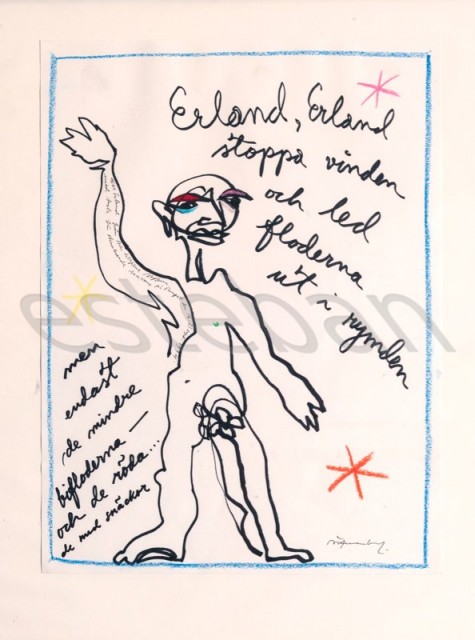 Erland, Erland
stoppa vinden
och led
floderna
ut i rymden
men
endast
de mindre
bifloderna —
och de röda...
de med snäckor
esteban